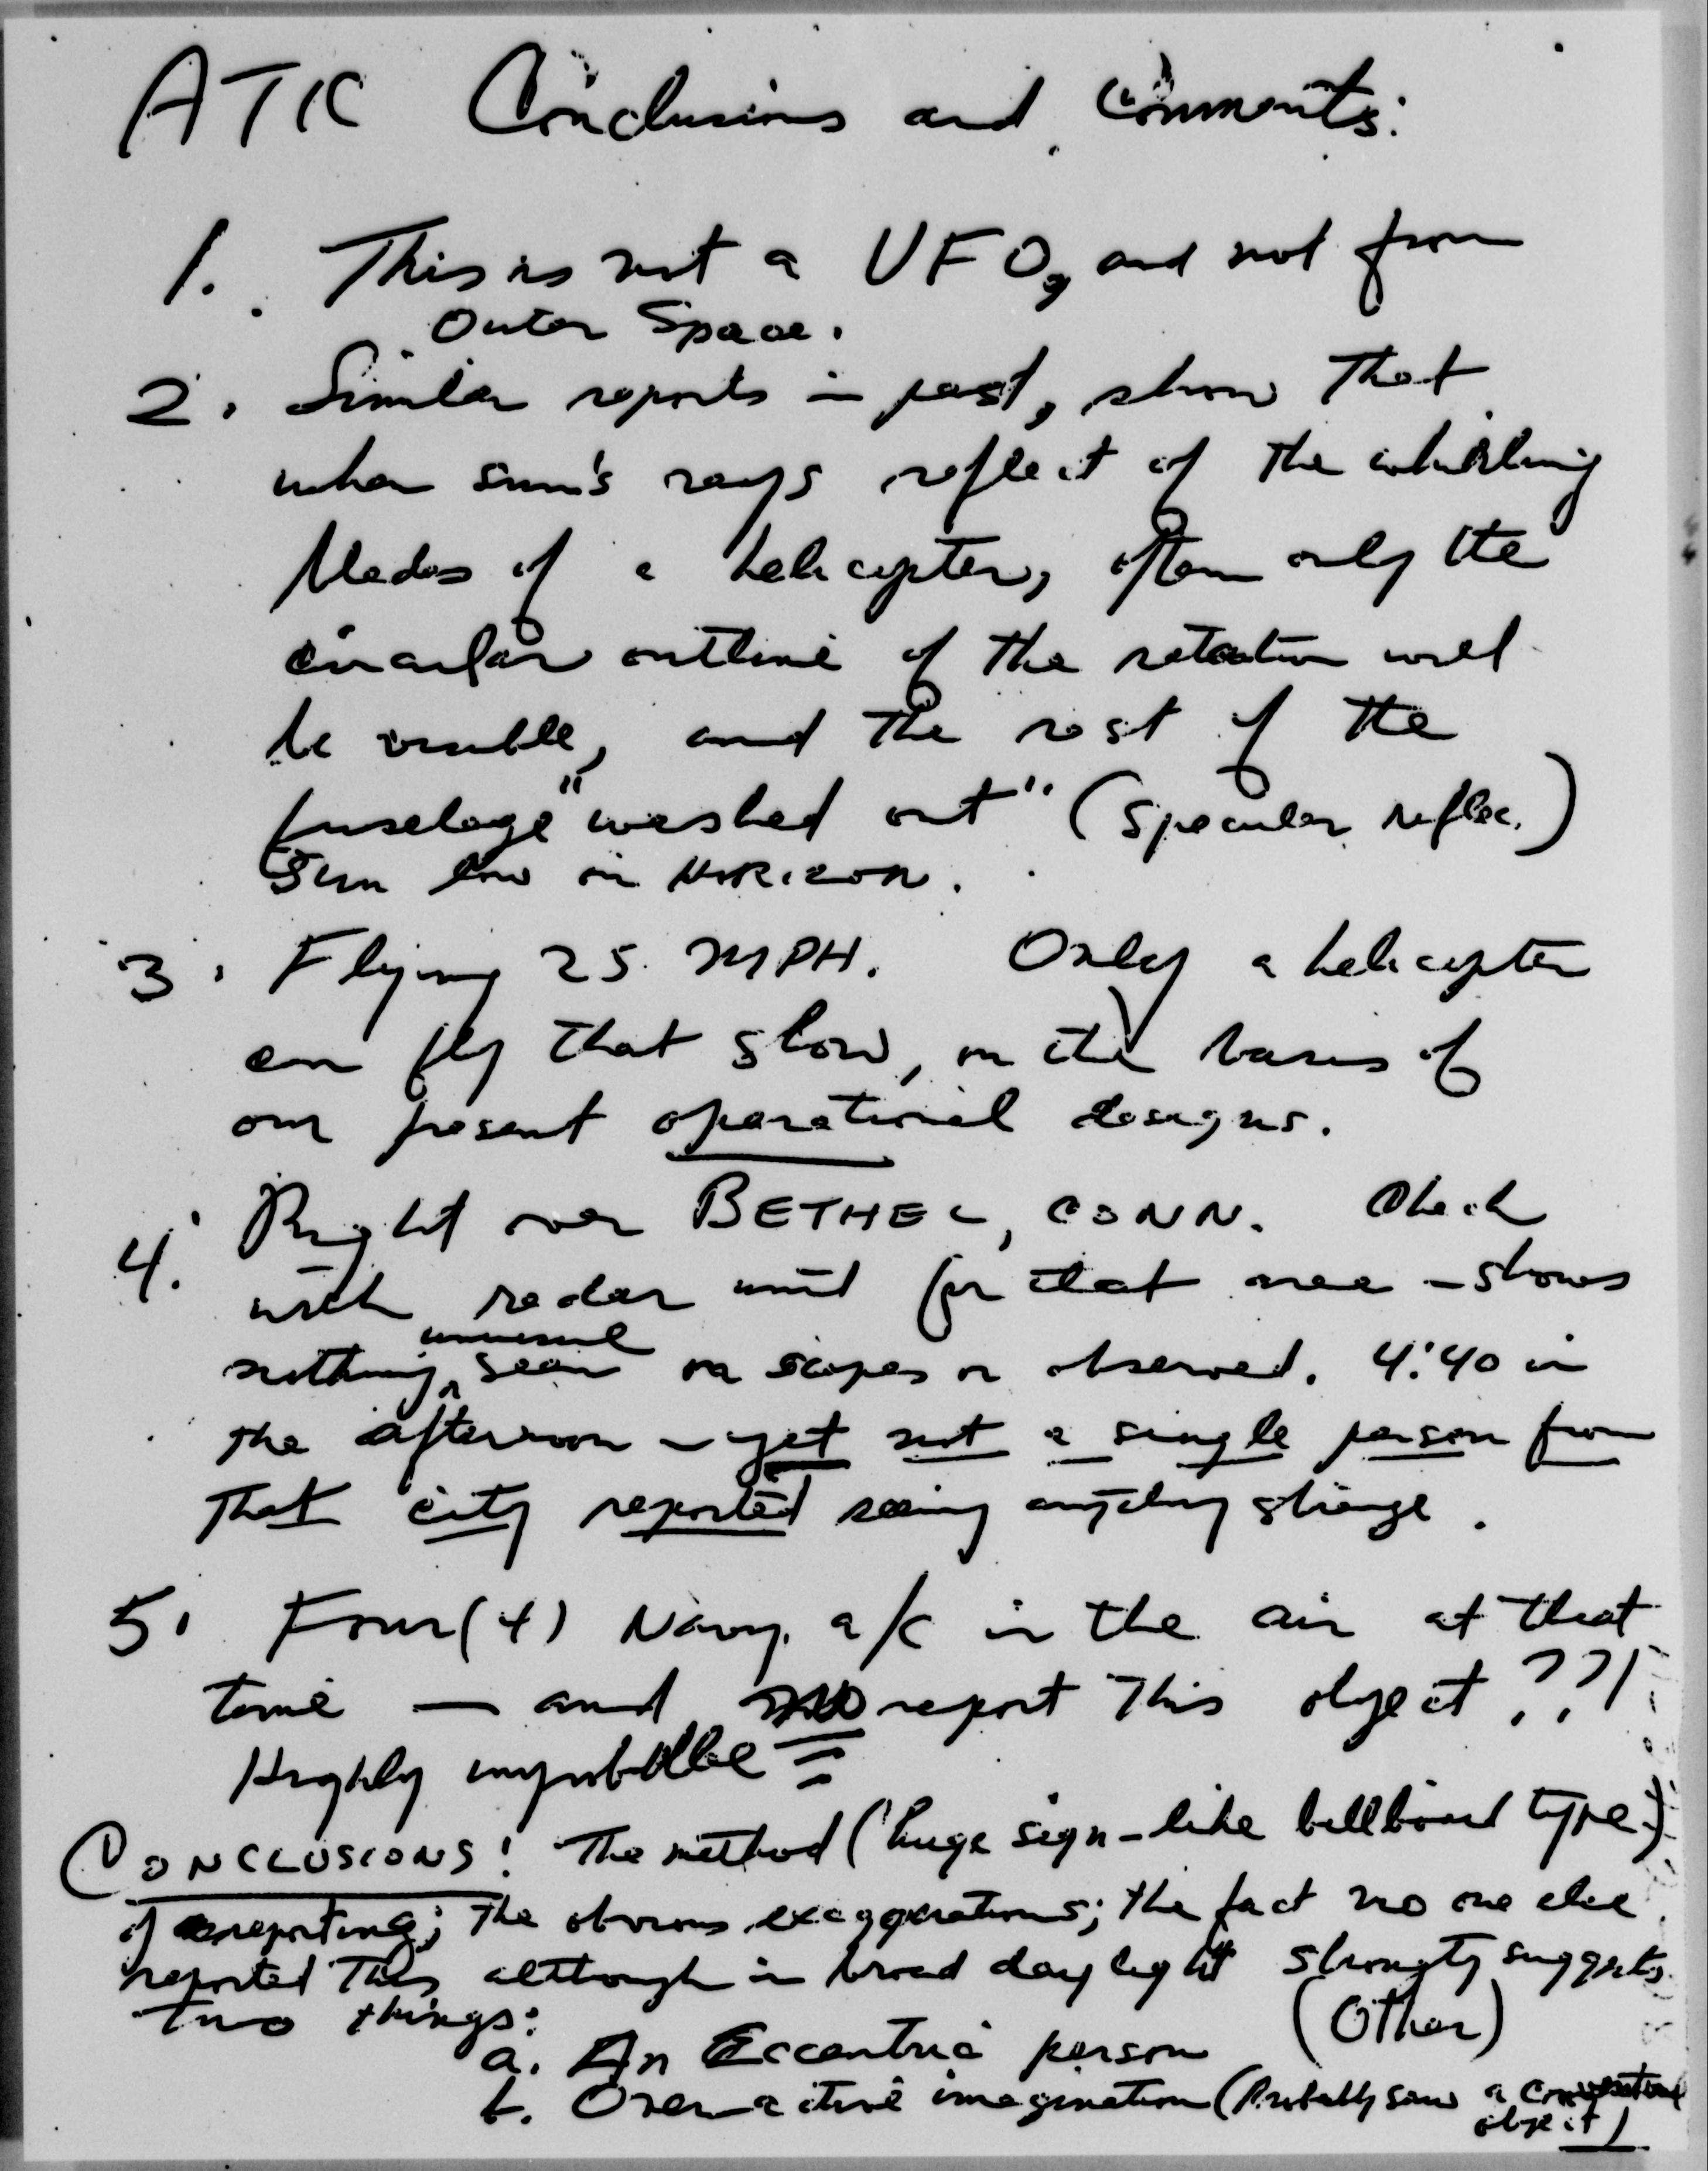 ATIC Conclusions and Comments:
1. This is not a UFO, and not from
Outer Space.
2. Similar reports in past, show that
when sun's rays reflect of the whirling
blades of a helicopter, often only the
circular outline of the rotation will
be visible, and the rest of the
fuselage "washed out" (Specular reflec.)
Sun low on HORIZON.
3. Flying 25 MPH. Only a helicopter
can fly that slow, on the basis of
our present operational designs.
4. Right over BETHEL, CONN. Check
with radar unit for that area - shows
unusual
nothing ^ seen on scopes or observed. 4:40 in
the afternoon - yet not a single person from
that city reported seeing anything strange.
5. Four (4) Navy a/c in the air at that
time — and no report this object ??!
Highly improbable
CONCLUSIONS: The method (huge sign-like billboard type)
of reporting; the obvious exaggerations; the fact no one else
reported this although in broad daylight strongly suggests
two things: (Other)
a. An Eccentric person
b. Over-active imagination (Probably saw a conventional
object)